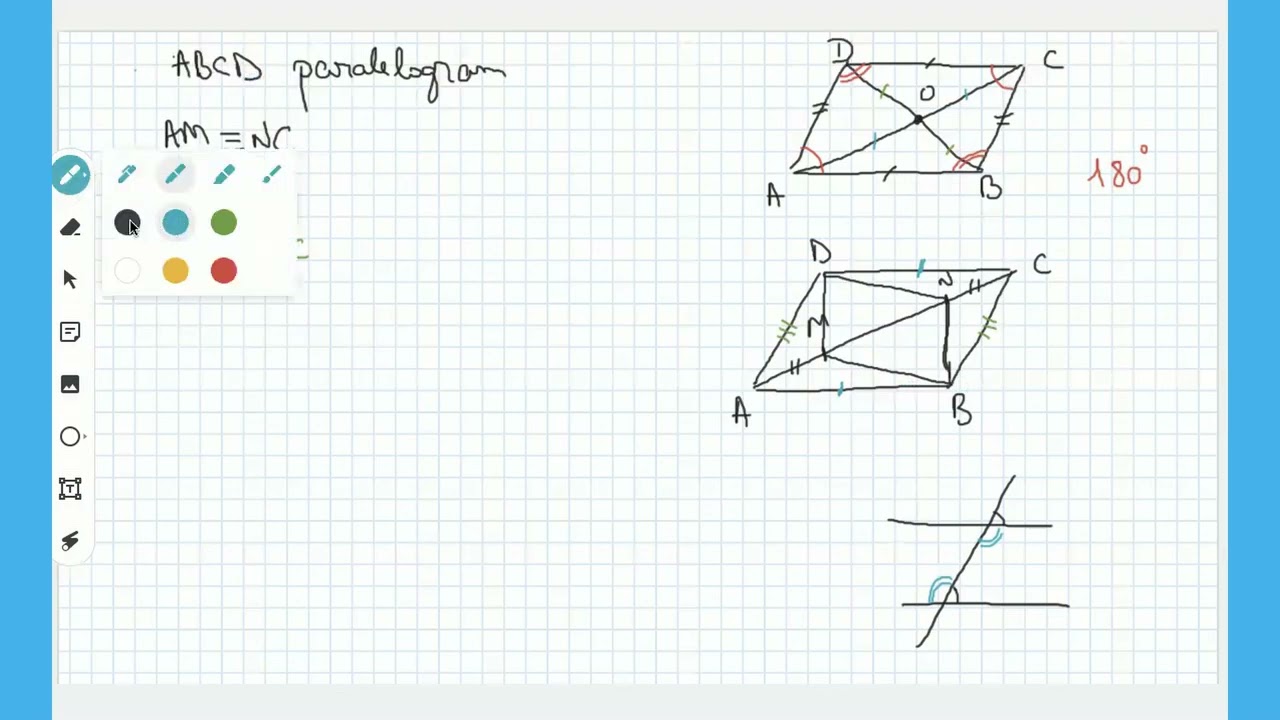 ABCD paralelogram
AM = NC
D
C
O
A
B
180°
D
C
N
M
A
B
T